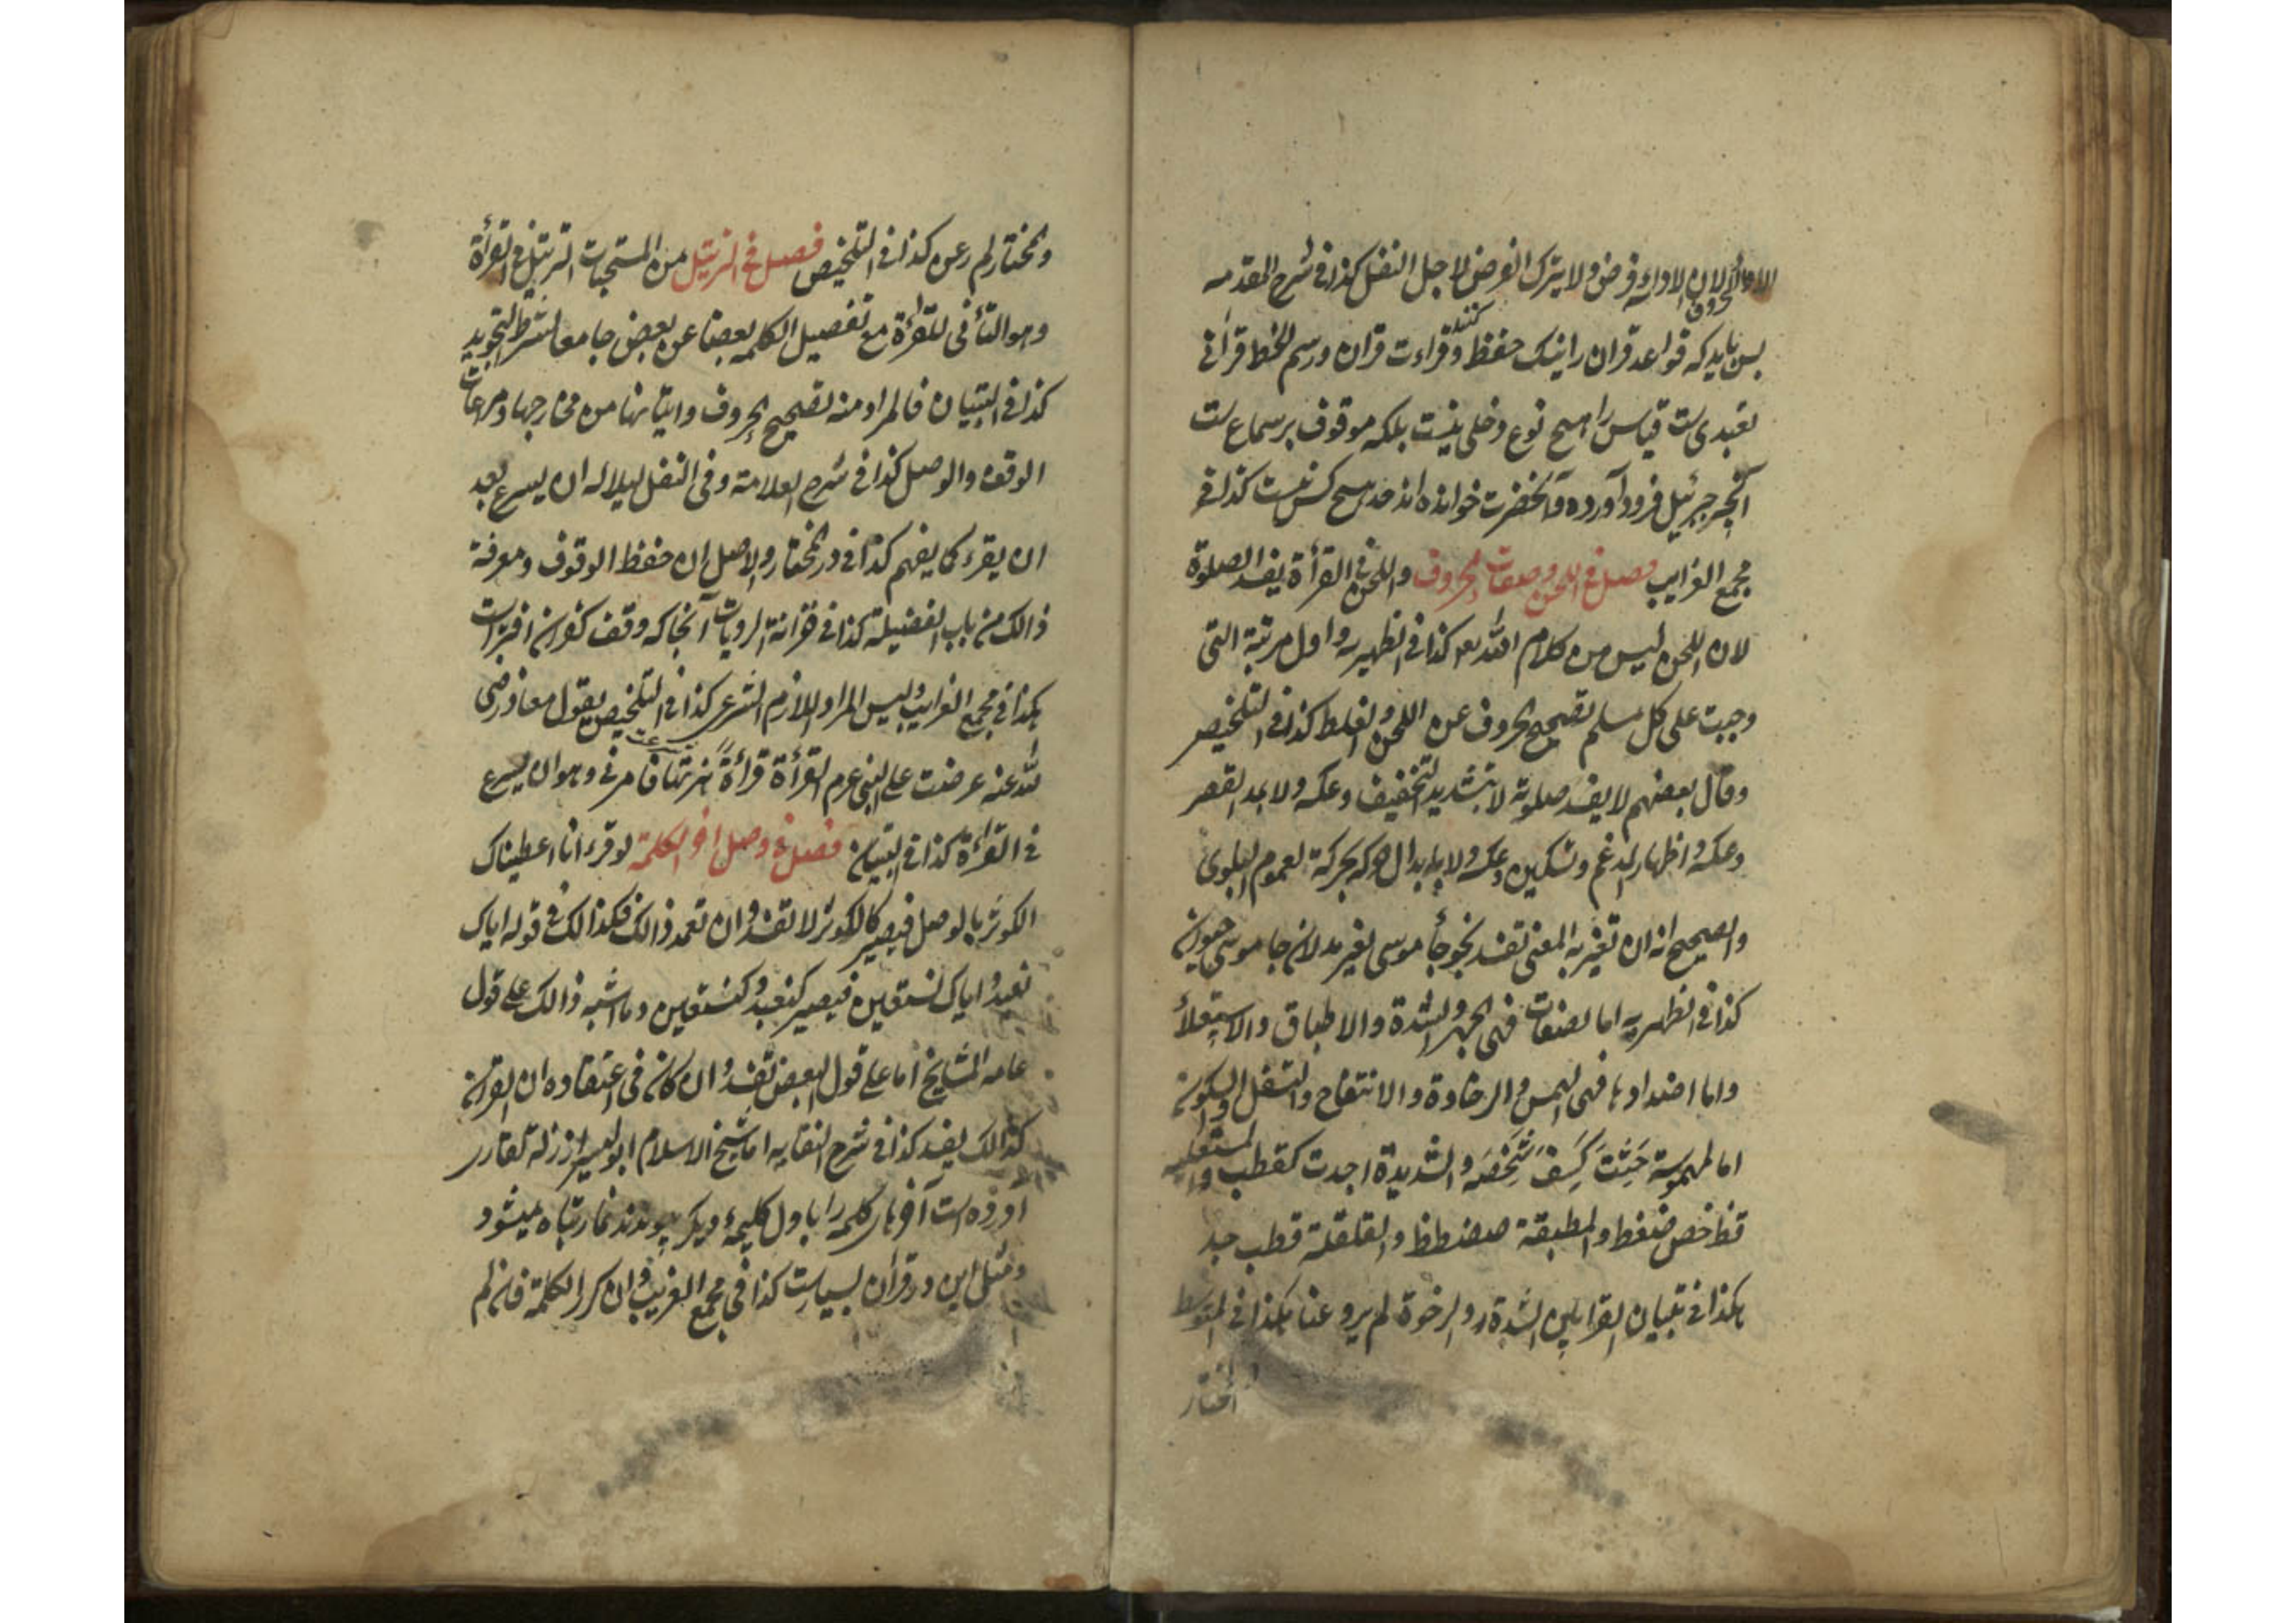 الاولی لان الاداء فرض ولا یترک الفرض لاجل النفل کذا فی شرح المقدمه
الحروف
پس باید که قواعد قران را نیک حفظ کنند وقراءت قران ورسم الخط قرانی
تعبدی است قیاس را هیچ نوع دخلی نیست بلکه موقوف بر سماع است
آنچه جبرئیل فرود آورده وآنحضرت خوانده اند حد هیچ کس نیست کذا فی
مجمع الغرایب فصل فی اللحن وصفات الحروف واللحن فی القرأة یفسد الصلوة
لان اللحن لیس من کلام الله تعه کذا فی الظهیریه واول مرتبة التی
وجبت علی کل مسلم تصحیح الحروف عن اللحن والغلط کذا فی التلخیص
وقال بعضهم لا یفسد صلوته لا بتشدید التخفیف وعکسه ولا بمد القصر
وعکسه واظهار المدغم وتسکین وعکسه ولا بابدال حرکه بحرکة لعموم البلوی
والصحیح انه ان تغیر به المعنی تفسد نحو جأ موسی بغیر مد لان جا موسی
کذا فی الظهیریه اما الصفات فهی الجهر والشدة والاطباق والاستعلأ
واما اضدادها فهی الهمس والرخاوة والانتفاح والتسفل والسکون
اما المهموسة حَثَثَ کَسِفَ شَخْصَه والشدیدة اجدت کقطب والمستعلیه
قظ خص ضغط والمطبقة صضطظ والقلقلة قطب جد
هکذا فی تبیان القرا بین الشدة والرخوة لم یرو عنا هکذا فی المتوسط
المختار
والمختار لم رعن کذا فی التلخیص فصل فی الترتیل من المستحبات الترتیل فی القرأة
وهو التأنی للقرأة مع تفصیل الکلمه بعضا عن بعض جامعا لشرط التجوید
کذا فی التبیان فالمراد منه تصحیح الحروف واتیانها من مخارجها ومراعات
الوقف والوصل کذا فی شرح العلامة وفی النفل لیلا له ان یسرع بعد
ان یقرء کما یفهم کذا فی در المختار والاصل ان حفظ الوقوف ومعرفة
ذالک من باب الفضیلة کذا فی خزانة الروایات آنجا که وقف کفران افتراست
هکذا فی مجمع الغرایب ولیس المراد اللازم الشرعی کذا فی التلخیص یقول معاذ رضی
لله عنه عرضت علی النبی عرم القرأة قرأةً سرتها فامرنی وهو ان یسرع
فی القرأة کذا فی التبیان فصل فی وصل اخر الکلمة لو قرء انا اعطیناک
الکوثر بالوصل فیصیر کالکوثر لا تفسد وان تعمد ذالک فکذالک فی قوله ایاک
نعبد وایاک نستعین فیصیر کنعبد وکنستعین وما اشبه ذالک علی قول
عامه المشایخ اما علی قول البعض تفسد وان کان فی اعتقاده ان القران
کذالک یفسد کذا فی شرح النقایه اما شیخ الاسلام ابو الیسر در زلة القاری
آورده است آخر هر کلمه را با ول کلیمهٔ دیکر پیوندند نماز تباه میشود
ومثل این در قرآن بسیار است کذا فی مجمع الغریب وان کرر الکلمة فان لم